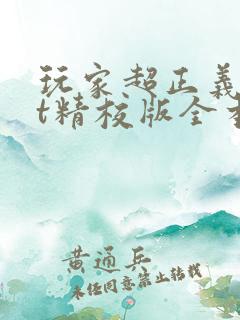 玩家超正义
t精校版全本
黄通兵
未经同意禁止转载